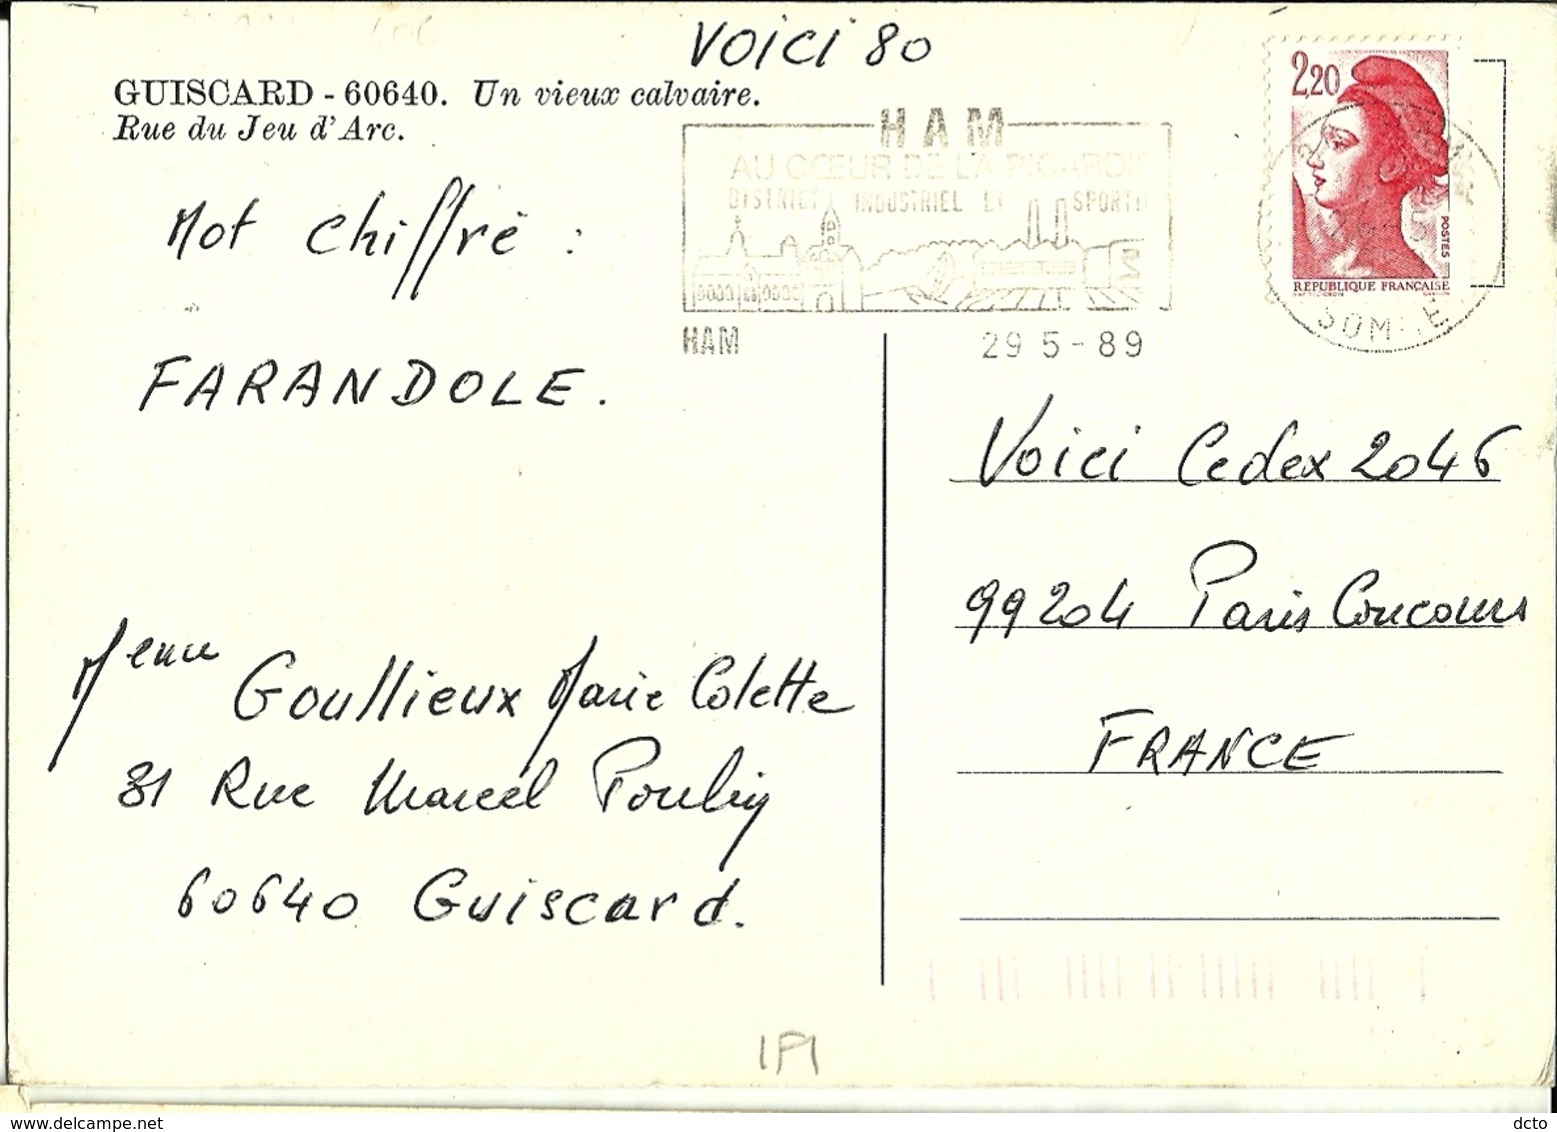 VOICI 80
GUISCARD - 60640. Un vieux calvaire.
Rue du Jeu d'Arc.
HAM
AU CŒUR DE LA PICARDIE
DISTRICT INDUSTRIEL ET SPORTIF
HAM
29 5 - 89
2,20
POSTES
REPUBLIQUE FRANÇAISE
SOMME
Mot chiffré :
FARANDOLE.
Voici Cedex 2046
99204 Paris Concours
FRANCE
Goullieux Marie Colette
31 Rue Marcel Poulin
60640 Guiscard.
1F1
delcampe.net
dcto